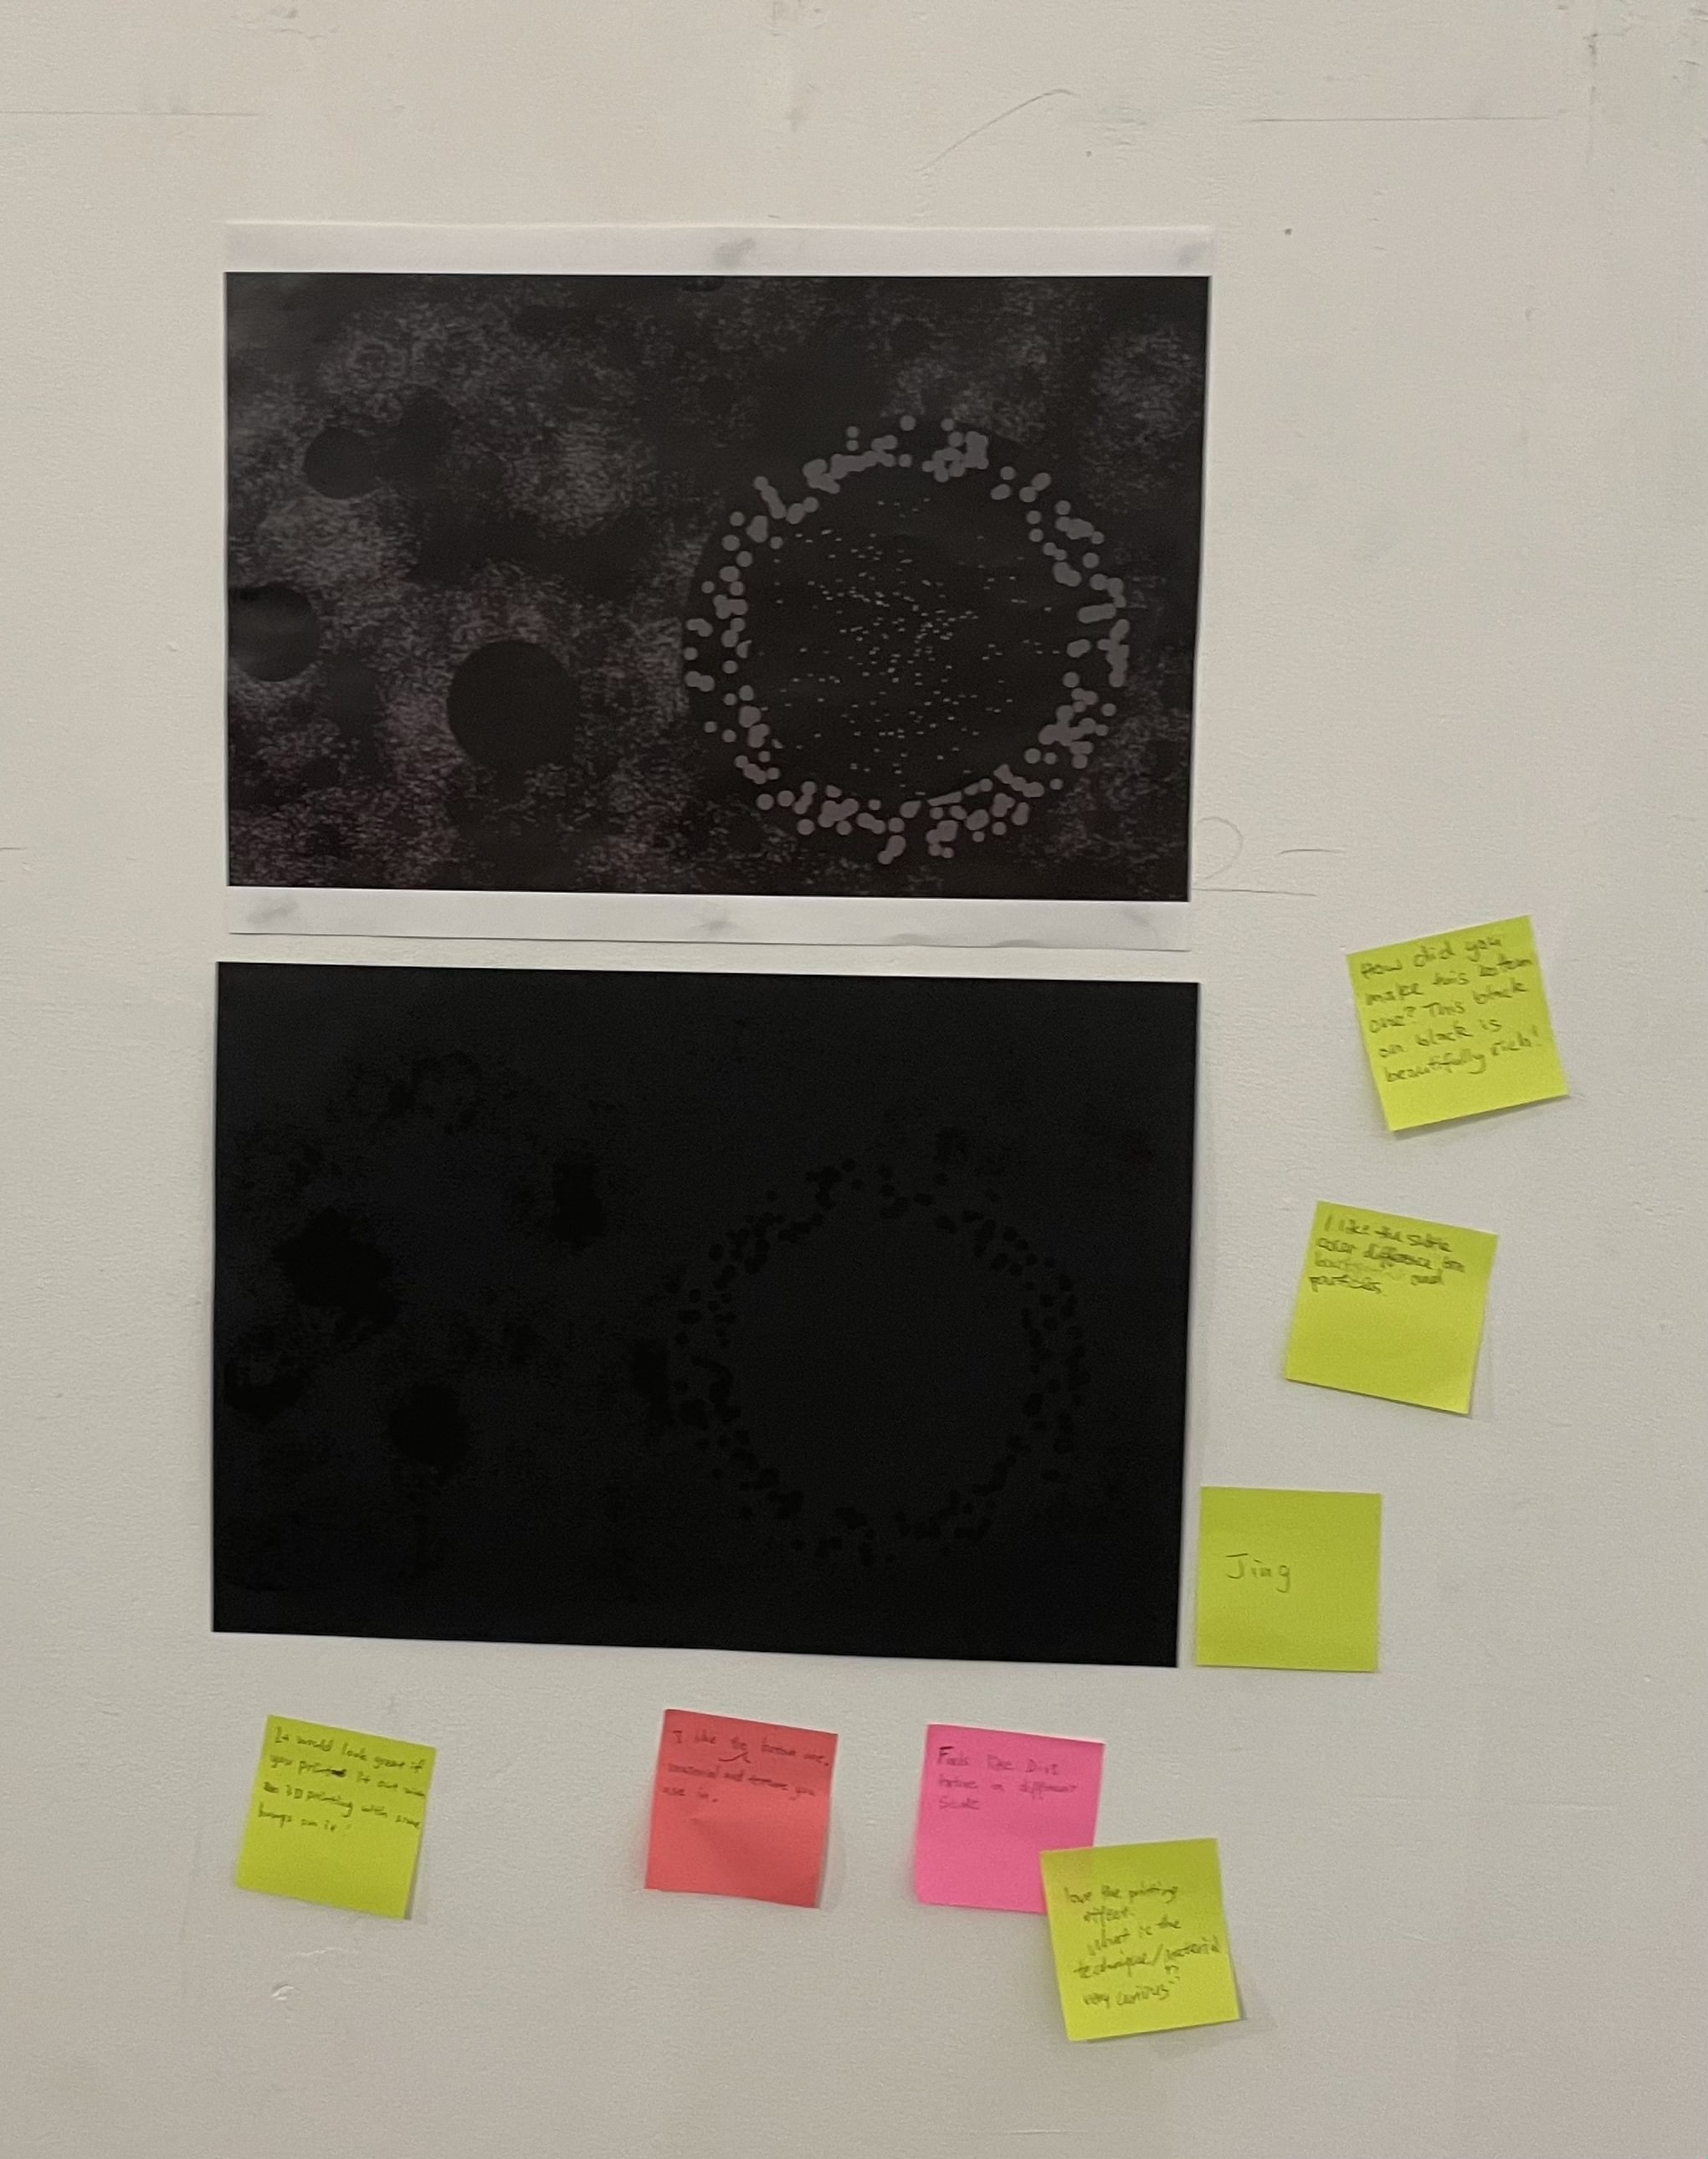 How did you
make this bottom
one? This black
on black is
beautifully rich!
I like the subtle
color difference
and
particles.
Jing
It would look great if
you printed it out with
3D printing with some
bumps on it!
I like the bottom one,
material and texture you
use in.
Feels like
a different
scale
love the printing
effect.
What is the
technique/material
??
very curious